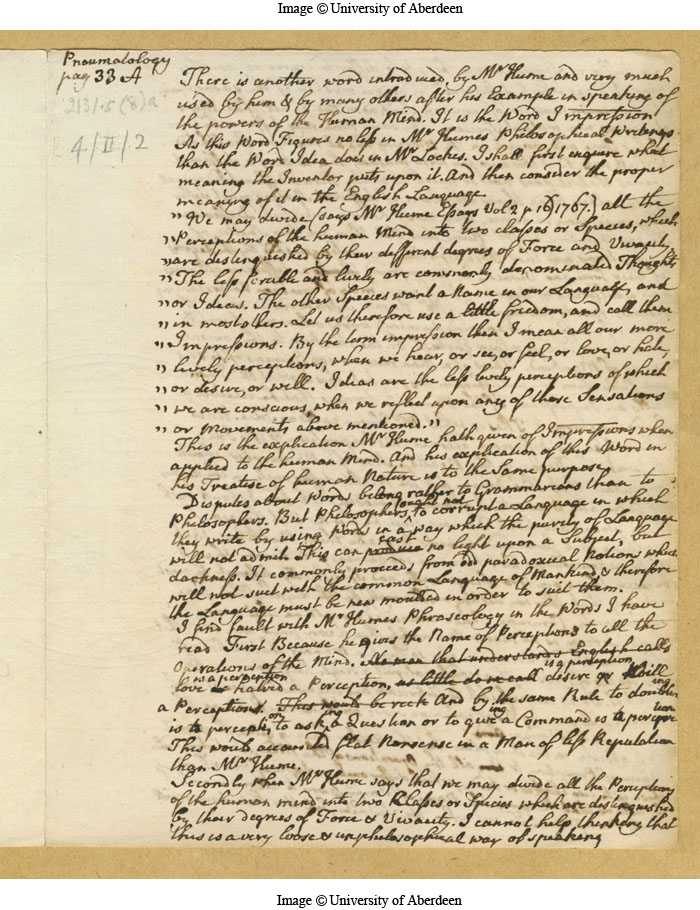 Image © University of Aberdeen
Pneumatology
pag 33 A
2131.5(8)a
4/II/2
There is another word introduced, by Mr Hume and very much
used by him & by many others after his Example in speaking of
the powers of the Human Mind. It is the Word Impression
As this Word Figures no less in Mr Humes Philosophical Writings
than the Word Idea does in Mr Lockes. I shall first enquire what
meaning the Inventor puts upon it. And then consider the proper
meaning of it in the English Language
" We may divide (says Mr Hume Essays Vol 2 p 1767.) all the
" Perceptions of the human Mind into two classes or Species, which
" are distinguished by their different degrees of Force and Vivacity,
" The less forcible and lively are commonly denominated Thoughts
" or Ideas. The other Species want a Name in our Language, and
" in most others. Let us therefore use a little freedom, and call them
" Impressions. By the term impression then I mean all our more
" lively perceptions, when we hear, or see, or feel, or love, or hate,
" or desire, or will. Ideas are the less lively perceptions of which
" we are conscious, when we reflect upon any of those Sensations
" or Movements above mentioned."
This is the explication Mr Hume hath given of Impressions when
applied to the human Mind. And his explication of this Word in
his Treatise of human Nature is to the Same purpose
Disputes about Words belong rather to Grammarians than to
Philosophers. But Philosophers ought not to corrupt a Language in which
they write by using Words in a way which the purity of Language
will not admit. This can cast no light upon a Subject, but
darkness. It commonly proceeds from paradoxical Notions which
will not suit with the common Language of Mankind & therefore
the Language must be new moulded in order to suit them.
I find fault with Mr Humes Phraseology in the Words I have
read First Because he gives the Name of Perceptions to all the
Operations of the Mind. No man that understands English calls
is a perception is a perception
love or hatred a Perception, as little do we call desire or Willing
a Perception. This would be reck And by the same Rule to doubt
is to perceive, or to asking a Question or to giving a Command is to perceive
This would accounted flat Nonsense in a Man of less Reputation
than Mr Hume.
Secondly when Mr Hume says that we may divide all the Perceptions
of the human mind into two Classes or Species which are distinguished
by their degrees of Force & Vivacity. I cannot help thinking that
this is a very loose & unphilosophical way of speaking
Image © University of Aberdeen